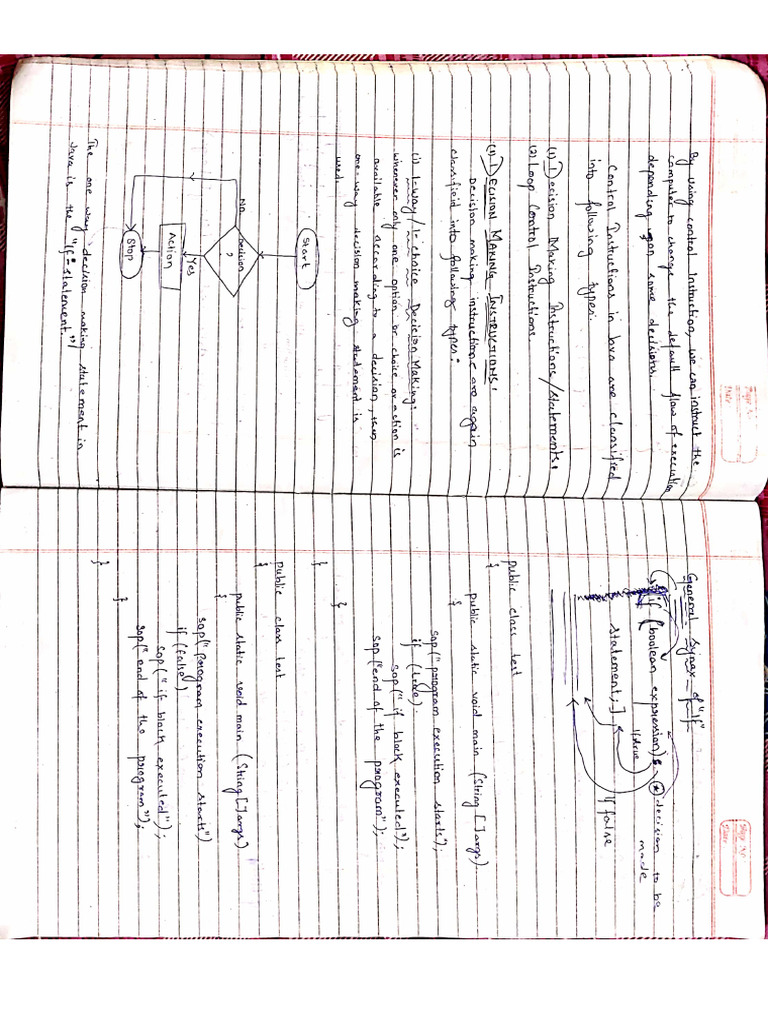 By using control Instruction, we can instruct the
computer to change the default flow of execution
depending upon some decisions.
Control Instructions in Java are classified
into following types:
(1) Decision Making Instructions/statements.
(2) Loop Control Instructions.
(1) DECISION MAKING INSTRUCTIONS:
Decision making instructions are again
classified into following types:
(i) 1-way/1-choice Decision Making:
whenever only one option or choice or action is
available according to a decision, then
one-way decision making statement is
used.
Start
Decision
?
No
Yes
Action
Stop
The one way decision making statement in
Java is the "if-statement"
General Synax of "if"
if (boolean expression) decision to be
made
if true
statement;
if false
public class test
{
public static void main (String [] args)
{
sop("program execution starts);
if (true).
sop(" if block executed");
sop("end of the program");
}
}
public class test
{
public static void main (String [] args)
{
sop("program execution starts")
if (false)
sop(" if block executed");
sop(" end of the program");
}
}